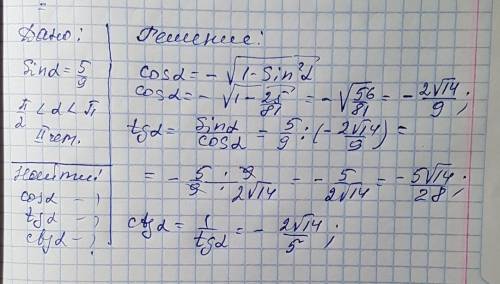 Дано:
sinα = 5/9
π/2 < α < π
II чет.
Найти:
cosα - ?
tgα - ?
ctgα - ?
Решение:
cosα = - √(1 - sin²α)
cosα = - √(1 - 25/81) = - √(56/81) = - 2√14/9 ;
tgα = sinα/cosα = 5/9 : (- 2√14/9) =
= - 5/9 : 9/2√14 = - 5/2√14 = - 5√14/28 ;
ctgα = 1/tgα = - 2√14/5 ;